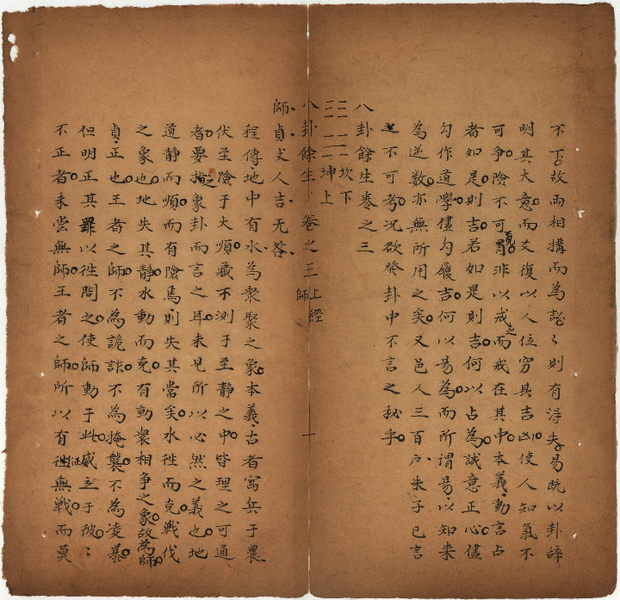 不下故兩相搆而為訟訟則有淂失易既以卦辞
明其大意而爻復以人位穷其吉凶使人知氣不
可争險不可冒非以戒之而戒在其中本義動言占
者如是則吉若如是則吉何以占為誠意正心儘
勾作道學儘勾履吉何以易為而所謂易以知来
為逆数亦無所用之矣又邑人三百户朱子已言
之不可為况欲発卦中不言之秘乎
八卦餘生卷之三
坎下
坤上
八卦餘生 卷之三 上經 師 一
師貞丈人吉无咎
程傳地中有水為衆聚之象本義古者寓兵于農
伏至險于大順藏不測于至静之中皆理之可通
者要之象卦而言之耳未見所以必然之義也地
道静而順而有險焉則失其當矣水徃而克戰伐
之象也地失其静水動而克有動衆相争之象故為師
貞正也王者之師不為詭詐不為掩襲不為凌暴
但明正其罪以徃問之使師動于此威立于彼彼
不正者未嘗無師王者之師所以有征無戰而莫